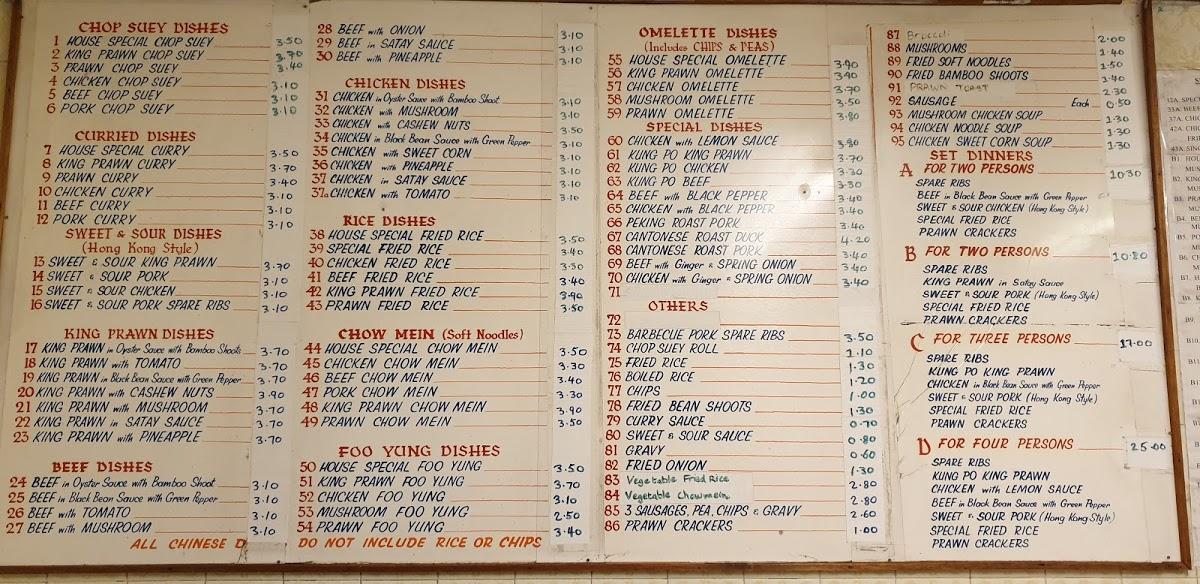 CHOP SUEY DISHES
1 HOUSE SPECIAL CHOP SUEY 3.50
2 KING PRAWN CHOP SUEY 3.70
3 PRAWN CHOP SUEY 3.40
4 CHICKEN CHOP SUEY 3.10
5 BEEF CHOP SUEY 3.10
6 PORK CHOP SUEY 3.10
CURRIED DISHES
7 HOUSE SPECIAL CURRY 3.50
8 KING PRAWN CURRY 3.70
9 PRAWN CURRY 3.40
10 CHICKEN CURRY 3.10
11 BEEF CURRY 3.10
12 PORK CURRY 3.10
SWEET & SOUR DISHES
(Hong Kong Style)
13 SWEET & SOUR KING PRAWN 3.70
14 SWEET & SOUR PORK 3.10
15 SWEET & SOUR CHICKEN 3.10
16 SWEET & SOUR PORK SPARE RIBS 3.10
KING PRAWN DISHES
17 KING PRAWN in Oyster Sauce with Bamboo Shoots 3.70
18 KING PRAWN with TOMATO 3.70
19 KING PRAWN in Black Bean Sauce with Green Pepper 3.70
20 KING PRAWN with CASHEW NUTS 3.90
21 KING PRAWN with MUSHROOM 3.70
22 KING PRAWN in SATAY SAUCE 3.70
23 KING PRAWN with PINEAPPLE 3.70
BEEF DISHES
24 BEEF in Oyster Sauce with Bamboo Shoot 3.10
25 BEEF in Black Bean Sauce with Green Pepper 3.10
26 BEEF with TOMATO 3.10
27 BEEF with MUSHROOM 3.10
28 BEEF with ONION 3.10
29 BEEF in SATAY SAUCE 3.10
30 BEEF with PINEAPPLE 3.10
CHICKEN DISHES
31 CHICKEN in Oyster Sauce with Bamboo Shoot 3.10
32 CHICKEN with MUSHROOM 3.10
33 CHICKEN with CASHEW NUTS 3.50
34 CHICKEN in Black Bean Sauce with Green Pepper 3.10
35 CHICKEN with SWEET CORN 3.10
36 CHICKEN with PINEAPPLE 3.10
37 CHICKEN in SATAY SAUCE 3.10
37a CHICKEN with TOMATO 3.10
RICE DISHES
38 HOUSE SPECIAL FRIED RICE 3.50
39 SPECIAL FRIED RICE 3.40
40 CHICKEN FRIED RICE 3.30
41 BEEF FRIED RICE 3.40
42 KING PRAWN FRIED RICE 3.90
43 PRAWN FRIED RICE 3.50
CHOW MEIN (Soft Noodles)
44 HOUSE SPECIAL CHOW MEIN 3.50
45 CHICKEN CHOW MEIN 3.30
46 BEEF CHOW MEIN 3.40
47 PORK CHOW MEIN 3.30
48 KING PRAWN CHOW MEIN 3.90
49 PRAWN CHOW MEIN 3.50
FOO YUNG DISHES
50 HOUSE SPECIAL FOO YUNG 3.50
51 KING PRAWN FOO YUNG 3.70
52 CHICKEN FOO YUNG 3.10
53 MUSHROOM FOO YUNG 2.50
54 PRAWN FOO YUNG 3.40
ALL CHINESE D DO NOT INCLUDE RICE OR CHIPS
OMELETTE DISHES
(Includes CHIPS & PEAS)
55 HOUSE SPECIAL OMELETTE 3.90
56 KING PRAWN OMELETTE 3.90
57 CHICKEN OMELETTE 3.70
58 MUSHROOM OMELETTE 3.50
59 PRAWN OMELETTE 3.80
SPECIAL DISHES
60 CHICKEN with LEMON SAUCE 3.30
61 KUNG PO KING PRAWN 3.70
62 KUNG PO CHICKEN 3.30
63 KUNG PO BEEF 3.30
64 BEEF with BLACK PEPPER 3.40
65 CHICKEN with BLACK PEPPER 3.40
66 PEKING ROAST PORK 3.40
67 CANTONESE ROAST DUCK 4.20
68 CANTONESE ROAST PORK 3.40
69 BEEF with Ginger & SPRING ONION 3.40
70 CHICKEN with Ginger & SPRING ONION 3.40
71
OTHERS
72
73 BARBECUE PORK SPARE RIBS 3.50
74 CHOP SUEY ROLL 1.10
75 FRIED RICE 1.30
76 BOILED RICE 1.20
77 CHIPS 1.00
78 FRIED BEAN SHOOTS 1.30
79 CURRY SAUCE 0.70
80 SWEET & SOUR SAUCE 0.80
81 GRAVY 0.60
82 FRIED ONION 1.30
83 Vegetable Fried Rice 2.80
84 Vegetable Chowmein 2.80
85 3 SAUSAGES, PEA, CHIPS & GRAVY 2.60
86 PRAWN CRACKERS 1.00
87 Broccoli 2.00
88 MUSHROOMS 1.40
89 FRIED SOFT NOODLES 1.50
90 FRIED BAMBOO SHOOTS 1.40
91 PRAWN TOAST 2.30
92 SAUSAGE Each 0.50
93 MUSHROOM CHICKEN SOUP 1.30
94 CHICKEN NOODLE SOUP 1.30
95 CHICKEN SWEET CORN SOUP 1.30
SET DINNERS
A FOR TWO PERSONS 10.30
SPARE RIBS
BEEF in Black Bean Sauce with Green Pepper
SWEET & SOUR CHICKEN (Hong Kong Style)
SPECIAL FRIED RICE
PRAWN CRACKERS
B FOR TWO PERSONS 10.80
SPARE RIBS
KING PRAWN in Satay Sauce
SWEET & SOUR PORK (Hong Kong Style)
SPECIAL FRIED RICE
PRAWN CRACKERS
C FOR THREE PERSONS 17.00
SPARE RIBS
KUNG PO KING PRAWN
CHICKEN in Black Bean Sauce with Green Pepper
SWEET & SOUR PORK (Hong Kong Style)
SPECIAL FRIED RICE
PRAWN CRACKERS
D FOR FOUR PERSONS 25.00
SPARE RIBS
KUNG PO KING PRAWN
CHICKEN with LEMON SAUCE
BEEF in Black Bean Sauce with Green Pepper
SWEET & SOUR PORK (Hong Kong Style)
SPECIAL FRIED RICE
PRAWN CRACKERS